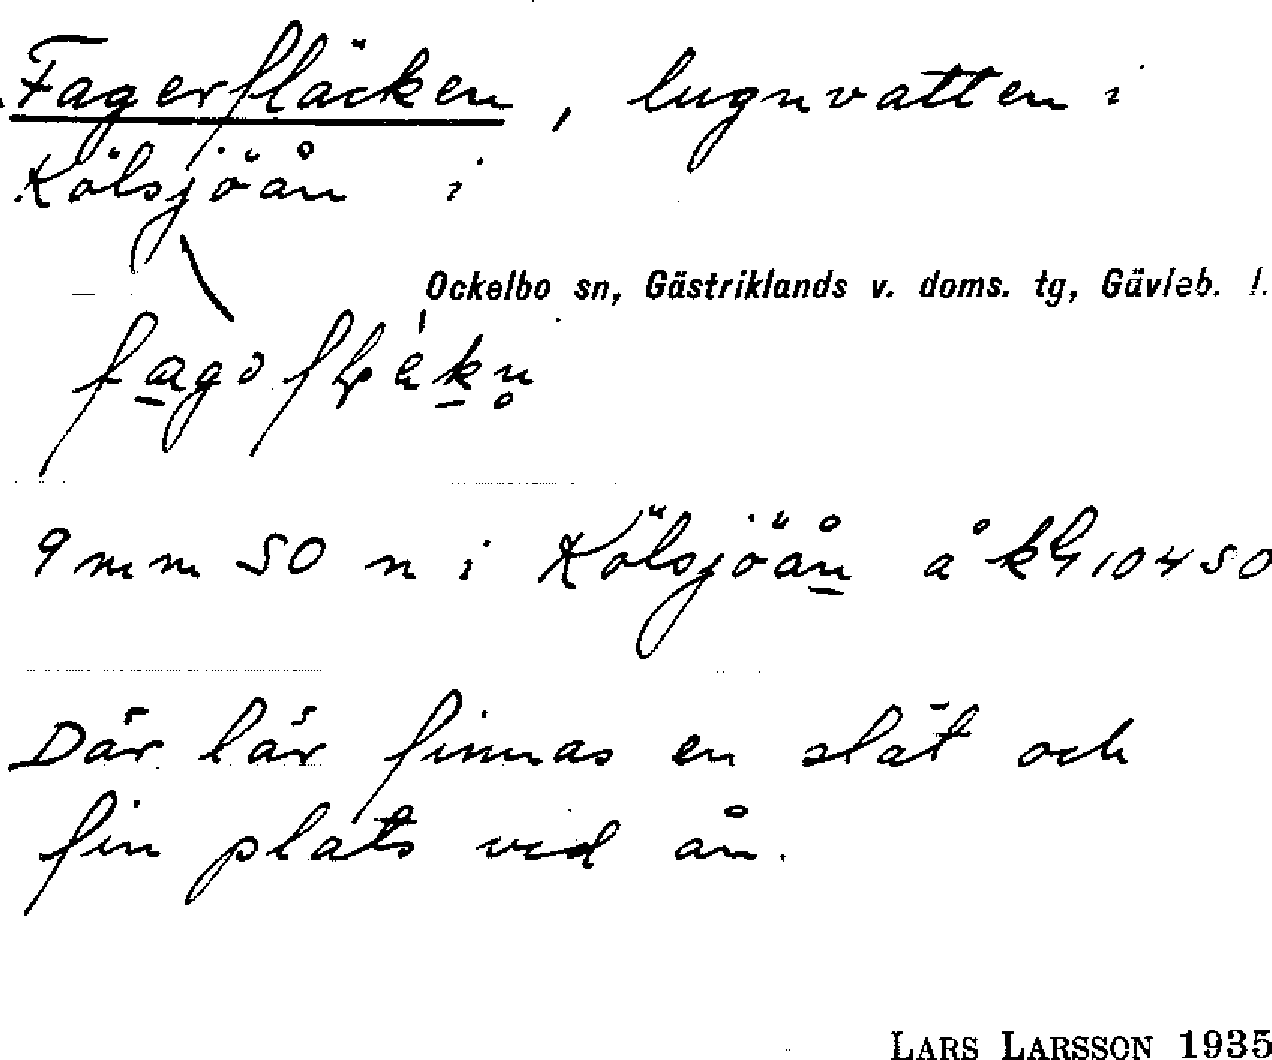 Fagerfläcken, lugnvatten i
Kölsjöån i
Ockelbo sn, Gästriklands v. doms. tg, Gävleb. l.
9 mm SO n i Kölsjöån å kbl 10450
Där lär finnas en slät och
fin plats vid ån.
LARS LARSSON 1935